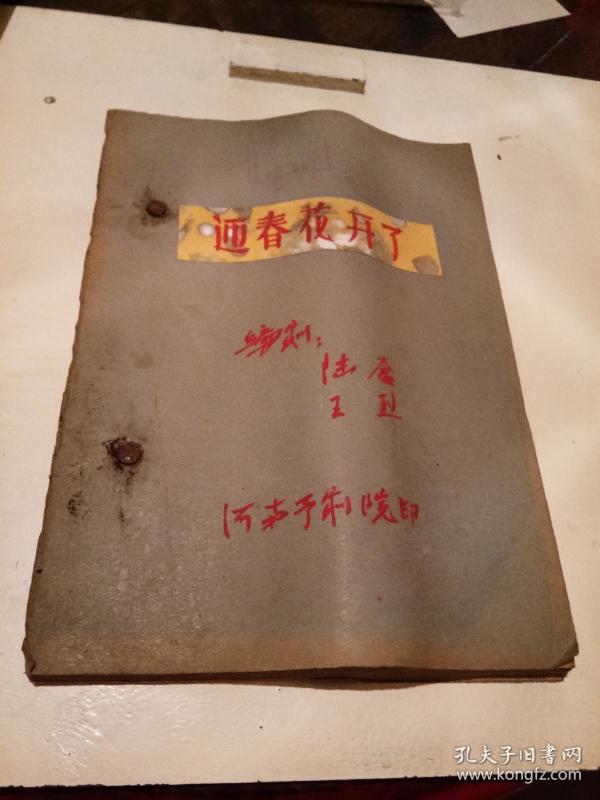 迎春花开了
编剧：
陆
王
河南予剧院印
孔夫子旧書网
www.kongfz.com